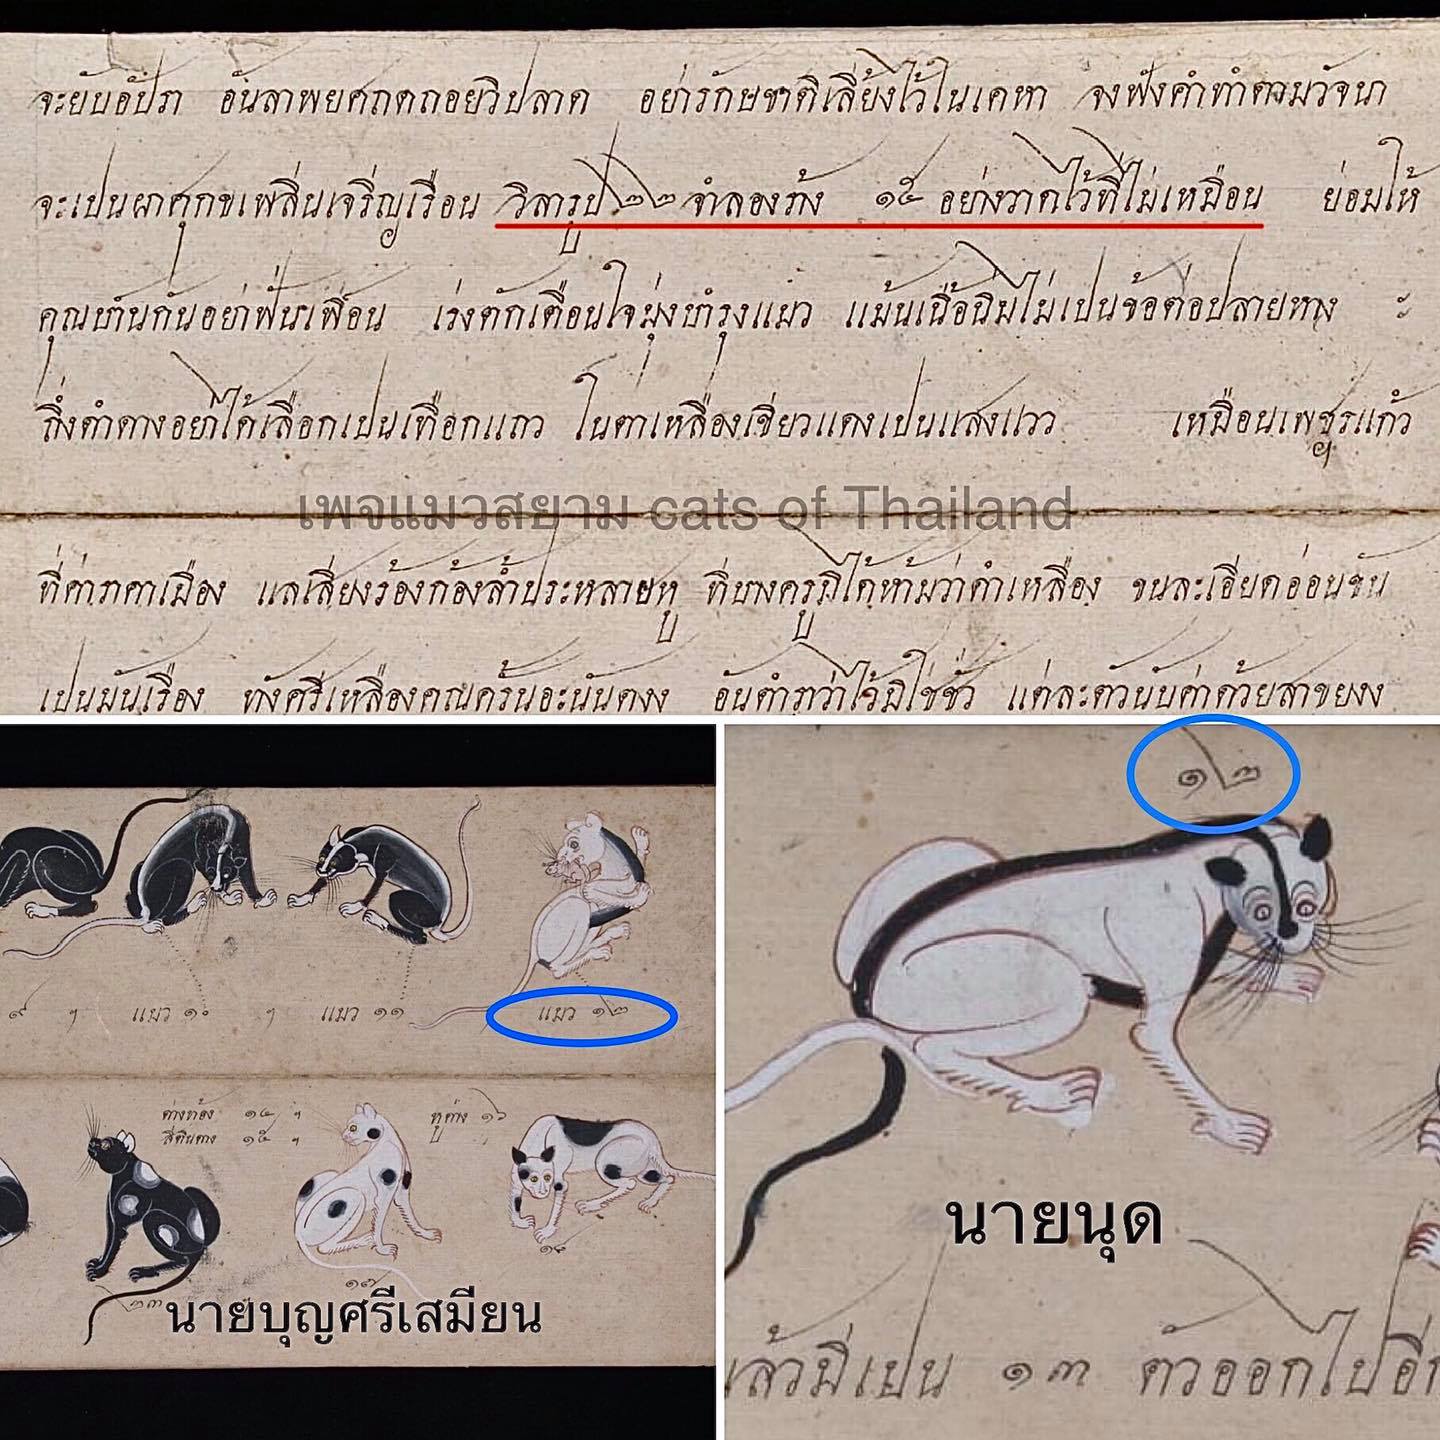 จะยับอัปรา อันลาพยศถดถอยวิปลาด อย่ารักษชาติเลี่ยงไว้ในเคหา จงฟังคำทำตามวัจนา
จะเปนผาศุกขเพลิ่นเจริ่ญเรือน วิลารูป ๒๒ จำลองร้าง ๑๕ อย่างวาดไว้ที่ไม่เหมือน ย่อมให้
คุณหันกันอย่าฟั่นเฟือน เร่งตักเตือนใจมุ่งบำรุงแมว แม้นเนื้อฉิมไม่เปนข้อต่อปลายหาง ะ
ถึ่งดำด่างอย่าได้เลือกเปนเทือกแถว ในตาเหลืองเขียวแดงเปนแสงแวว เหมือนเพชรแก้ว
เพจแมวสยาม cats of Thailand
ที่ค่าภตาเมือง แลเสี่ยงร้องก้องล้ำประหลาษหู ที่บางครูมิได้ห้ามว่าดำเหลือง ขนละเอียดอ่อน
เปนมันเรือง ทังศรีเหลืองคณครั้นอะนันตงง อันดำรกว่าไว้มิใช่ชั่ว แต่ละตัวนับค่าด้วย
๙ ฯ แมว ๑๐ ฯ แมว ๑๑ แมว ๑๒
ด่างท้อง ๑๔ ฯ หูด่าง ๑๖
สี่ตีนด่าง ๑๕ ฯ
๑๗
๒๓
นายบุญศรีเสมียน
๑๒
นายนุด
แล้วมีเปน ๑๓ ตัวออกไปอีก